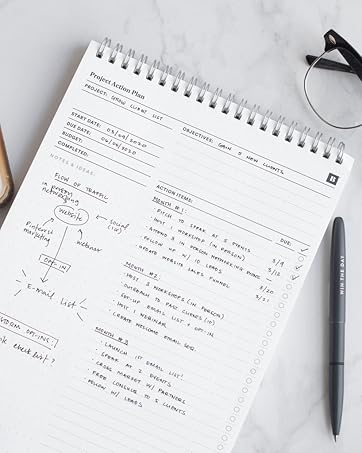 Project Action Plan
PROJECT: GROW CLIENT LIST
OBJECTIVES: GAIN 5 NEW CLIENTS
START DATE: 03/04/2020
DUE DATE: 06/04/2020
BUDGET:
COMPLETED:
NOTES & IDEAS:
FLOW OF TRAFFIC
in person
networking
website
social
(IG)
Pinterest
marketing
webinar
OPT-IN
E-Mail List!
OPT-INS:
checklist?
ACTION ITEMS:
DUE:
MONTH #1:
· PITCH TO SPEAK AT 5 EVENTS
· HOST 1 WORKSHOP (IN PERSON) 3/9
· ATTEND 3 IN PERSON NETWORKING 3/12
· FOLLOW UP W/ 10 LEADS 3/20
· UPDATE WEBSITE SALES FUNNEL 3/31
MONTH #2:
· HOST 2 WORKSHOPS (IN PERSON)
· OUTREACH TO PAST CLIENTS (10)
· SET-UP EMAILS LIST + OPT-IN
· HOST 1 WEBINAR
· CREATE WELCOME EMAIL SEQ.
MONTH #3
· LAUNCH 1ST EMAIL LIST!
· SPEAK AT 2 EVENTS
· CROSS MARKET W/ PARTNERS
· FREE CONSULT TO 5 CLIENTS
· FOLLOW W/ LEADS
WIN THE DAY